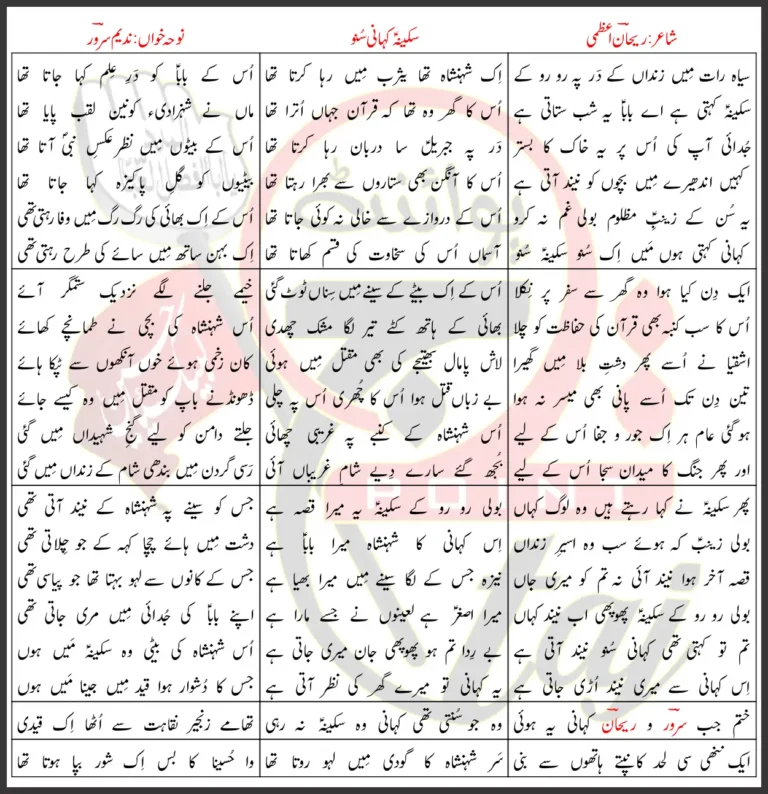 شاعر: ریحان اعظمی
سکینہؑ کہانی سُنو
نوحہ خواں: ندیم سرور
سیاہ رات میں زنداں کے دَر پہ رو رو کے
سکینہؑ کہتی ہے اے باباؑ یہ شب ستاتی ہے
جُدائی آپ کی اُس پر یہ خاک کا بستر
کہیں اندھیرے میں بچوں کو نیند آتی ہے
یہ سُن کے زینبِؑ مظلوم بولی غم نہ کرو
کہانی کہتی ہوں مَیں اِک سُنو سکینہؑ سُنو
اِک شہنشاہ تھا یثرب میں رہا کرتا تھا
اُس کا گھر وہ تھا کہ قرآن جہاں اُترا تھا
دَر پہ جبریلؑ سا دربان رہا کرتا تھا
اُس کا آنگن بھی ستاروں سے بھرا رہتا تھا
اُس کے دروازے سے خالی نہ کوئی جاتا تھا
آسماں اُس کی سخاوت کی قسم کھاتا تھا
اُس کے باباؑ کو دَرِ عِلم کہا جاتا تھا
ماں نے شہزادیء کونین لقب پایا تھا
اُس کے بیٹوں میں نظر عکسِ نبیؐ آتا تھا
بیٹیوں کو گلِ پاکیزہ کہا جاتا تھا
اُس کے اِک بھائی کی رگ رگ میں وفا رہتی تھی
اِک بہن ساتھ میں سائے کی طرح رہتی تھی
ایک دِن کیا ہوا وہ گھر سے سفر پر نِکلا
اُس کا سب کنبہ بھی قرآن کی حفاظت کو چلا
اشقیا نے اُسے پھر دشتِ بلا میں گھیرا
تین دِن تک اُسے پانی بھی میسر نہ ہوا
ہوگئی عام ہر اِک جور و جفا اُس کے لیے
اور پھر جنگ کا میدان سجا اُس کے لیے
اُس کے اِک بیٹے کے سینے میں سِناں ٹوٹ گئی
بھائی کے ہاتھ کٹے تیر لگا مشک چھدی
لاش پامال بھتیجے کی بھی مقتل میں ہوئی
بے زباں قتل ہوا اُس کا چُھری اُس پہ چلی
اُس شہنشاہ کے کنبے پہ غریبی چھائی
بُجھ گئے سارے دِیے شامِ غریباں آئی
خیمے جلنے لگے نزدیک ستمگر آئے
اُس شہنشاہ کی بچی نے طمانچے کھائے
کان زخمی ہوئے خوں آنکھوں سے ٹپکا ہائے
ڈھونڈنے باپ کو مقتل میں وہ کیسے جائے
جلتے دامن کو لیے گنجِ شہیداں میں گئی
رَسی گردن میں بندھی شام کے زنداں میں گئی
پھر سکینہؑ نے کہا رہتے ہیں وہ لوگ کہاں
بولی زینبؑ کہ ہوئے سب وہ اسیرِ زنداں
قصہ آخر ہوا نیند آئی نہ تم کو میری جاں
بولی رو رو کے سکینہؑ پھوپھی اب نیند کہاں
تم تو کہتی تھی کہانی سُنو نیند آتی ہے
اِس کہانی سے میری نیند اُڑی جاتی ہے
بولی رو رو کے سکینہؑ یہ میرا قصہ ہے
اِس کہانی کا شہنشاہ میرا باباؑ ہے
نیزہ جس کے لگا سینے میں میرا بھیا ہے
میرا اصغرؑ ہے لعینوں نے جسے مارا ہے
بے رِدا تم ہو پھوپھی جان میری جاتی ہے
یہ کہانی تو میرے گھر کی نظر آتی ہے
جس کو سینے پہ شہنشاہ کے نیند آتی تھی
دشت میں ہائے چچا کہہ کے جو چِلاتی تھی
جس کے کانوں سے لہو بہتا تھا جو پیاسی تھی
اپنے باباؑ کی جُدائی میں مری جاتی تھی
اُس شہنشاہ کی بیٹی وہ سکینہؑ مَیں ہوں
جس کا دُشوار ہوا قید میں جینا مَیں ہوں
ختم جب سرور و ریحان کہانی یہ ہوئی
ایک ننھی سی لحد کانپتے ہاتھوں سے بنی
وہ جو سُنتی تھی کہانی وہ سکینہؑ نہ رہی
سَر شہنشاہ کا گودی میں لہو روتا تھا
تھامے زنجیر نقاہت سے اُٹھا اِک قیدی
وا حُسینا کا بس اِک شور بپا ہوتا تھا
POINT